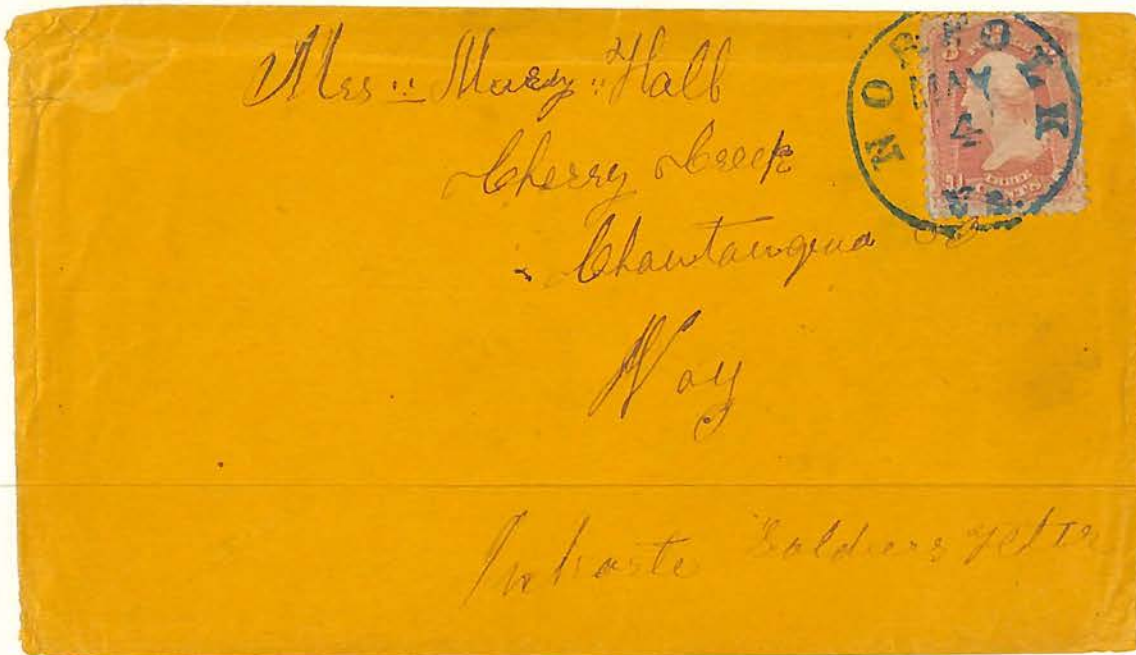 Mrs :: Mary :: Hall
Cherry Creek
Chautauqua Co
N oy
In haste Soldiers letter
NORFOLK
MAY
4
Va.
THREE
CENTS